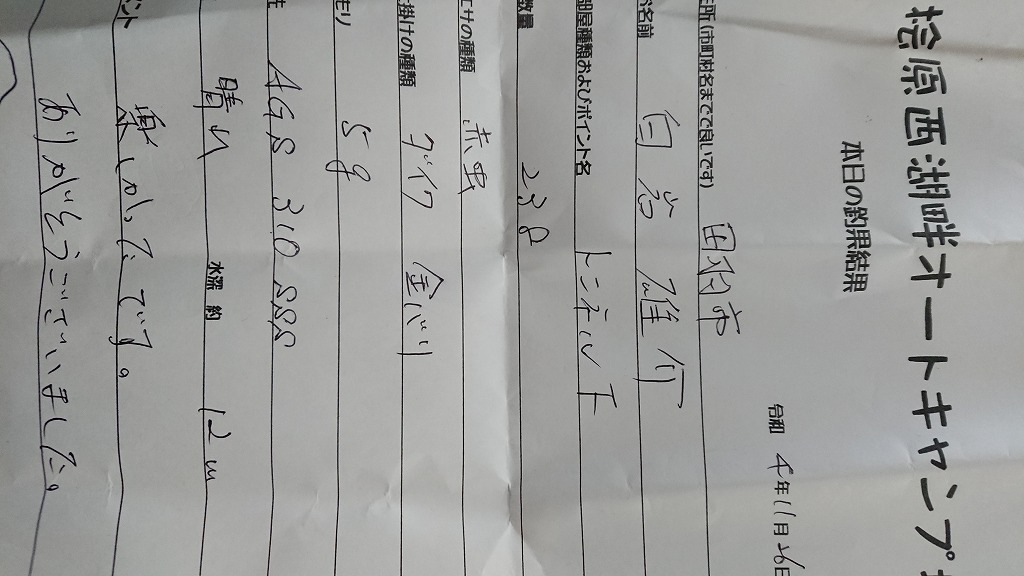 桧原西湖畔オートキャンプ
本日の釣果結果
令和 4年11月26日
住所(市町村名までで良いです) 田村市
お名前 白岩 雄
部屋種類およびポイント名 トンネル下
数量 238
エサの種類 赤虫
仕掛けの種類 ダイワ 金バリ
オモリ 5g
AGS 310 SSS
晴れ 水深 約 12m
コメント 楽しかったです。
ありがとうございました。